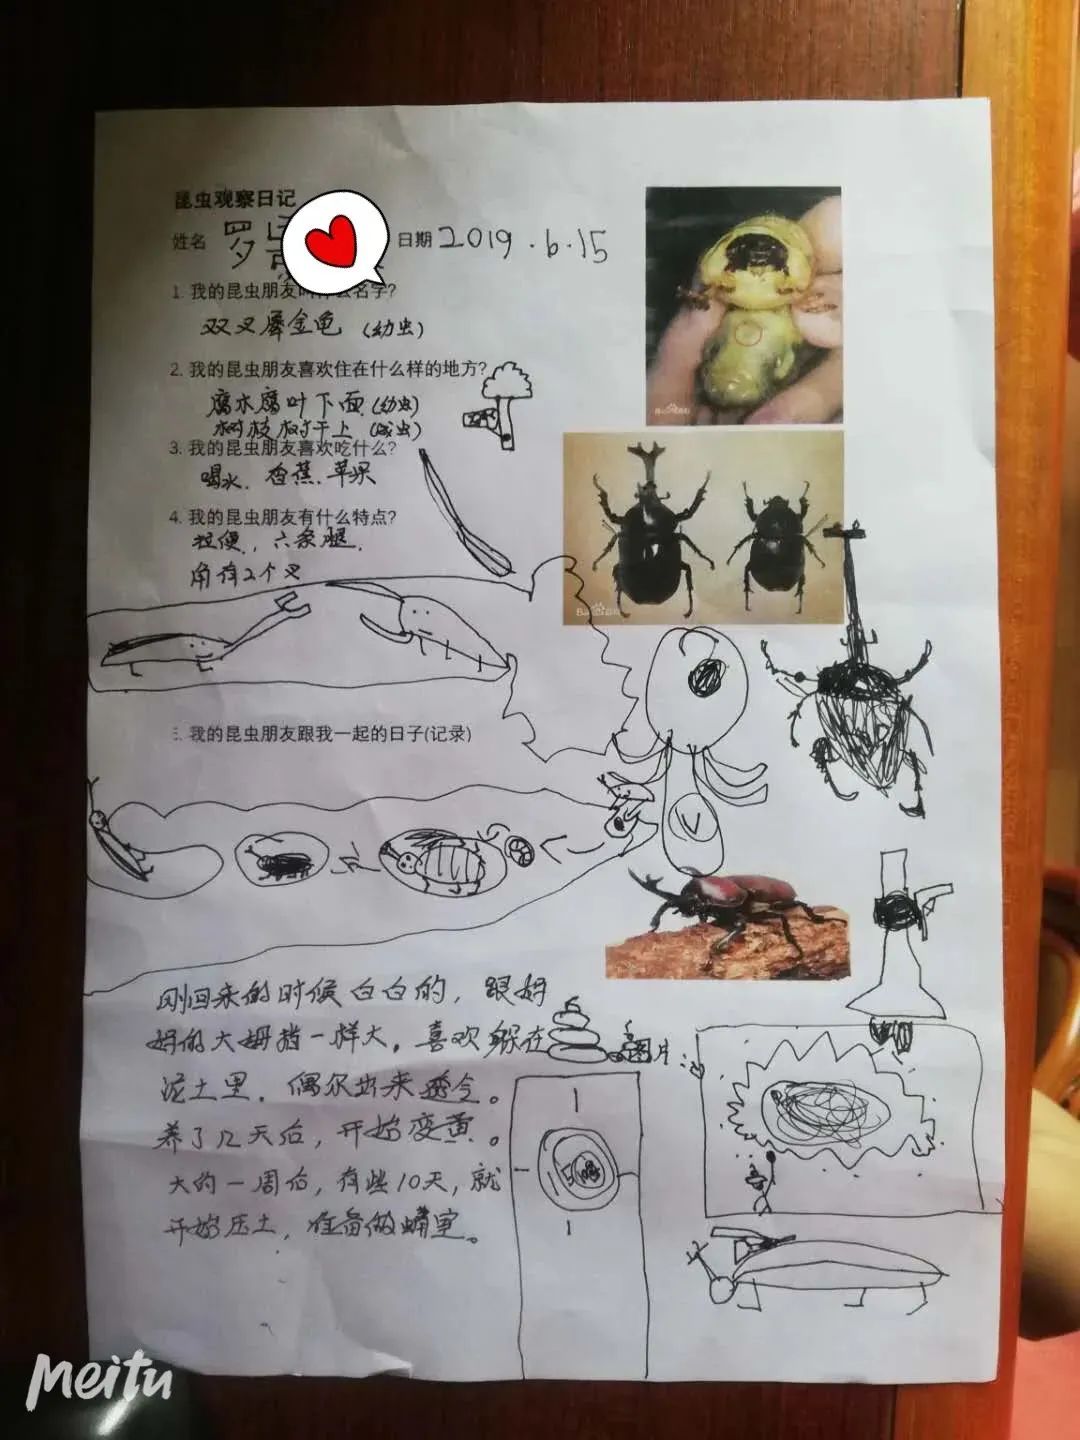 昆虫观察日记
姓名 罗 日期 2019.6.15
1. 我的昆虫朋友叫什么名字?
双叉犀金龟 (幼虫)
2. 我的昆虫朋友喜欢住在什么样的地方?
腐木腐叶下面 (幼虫)
树枝树干上 (成虫)
3. 我的昆虫朋友喜欢吃什么?
喝水. 香蕉. 苹果
4. 我的昆虫朋友有什么特点?
拉便, 六条腿,
角有2个叉
我的昆虫朋友跟我一起的日子(记录)
刚回来的时候白白的, 跟妈
妈的大姆指一样大. 喜欢躲在
图片:
泥土里. 偶尔出来透令。
养了几天后, 开始变黄。
大约一周后, 有些10天, 就
开始压土, 准备做蛹室。
Meitu